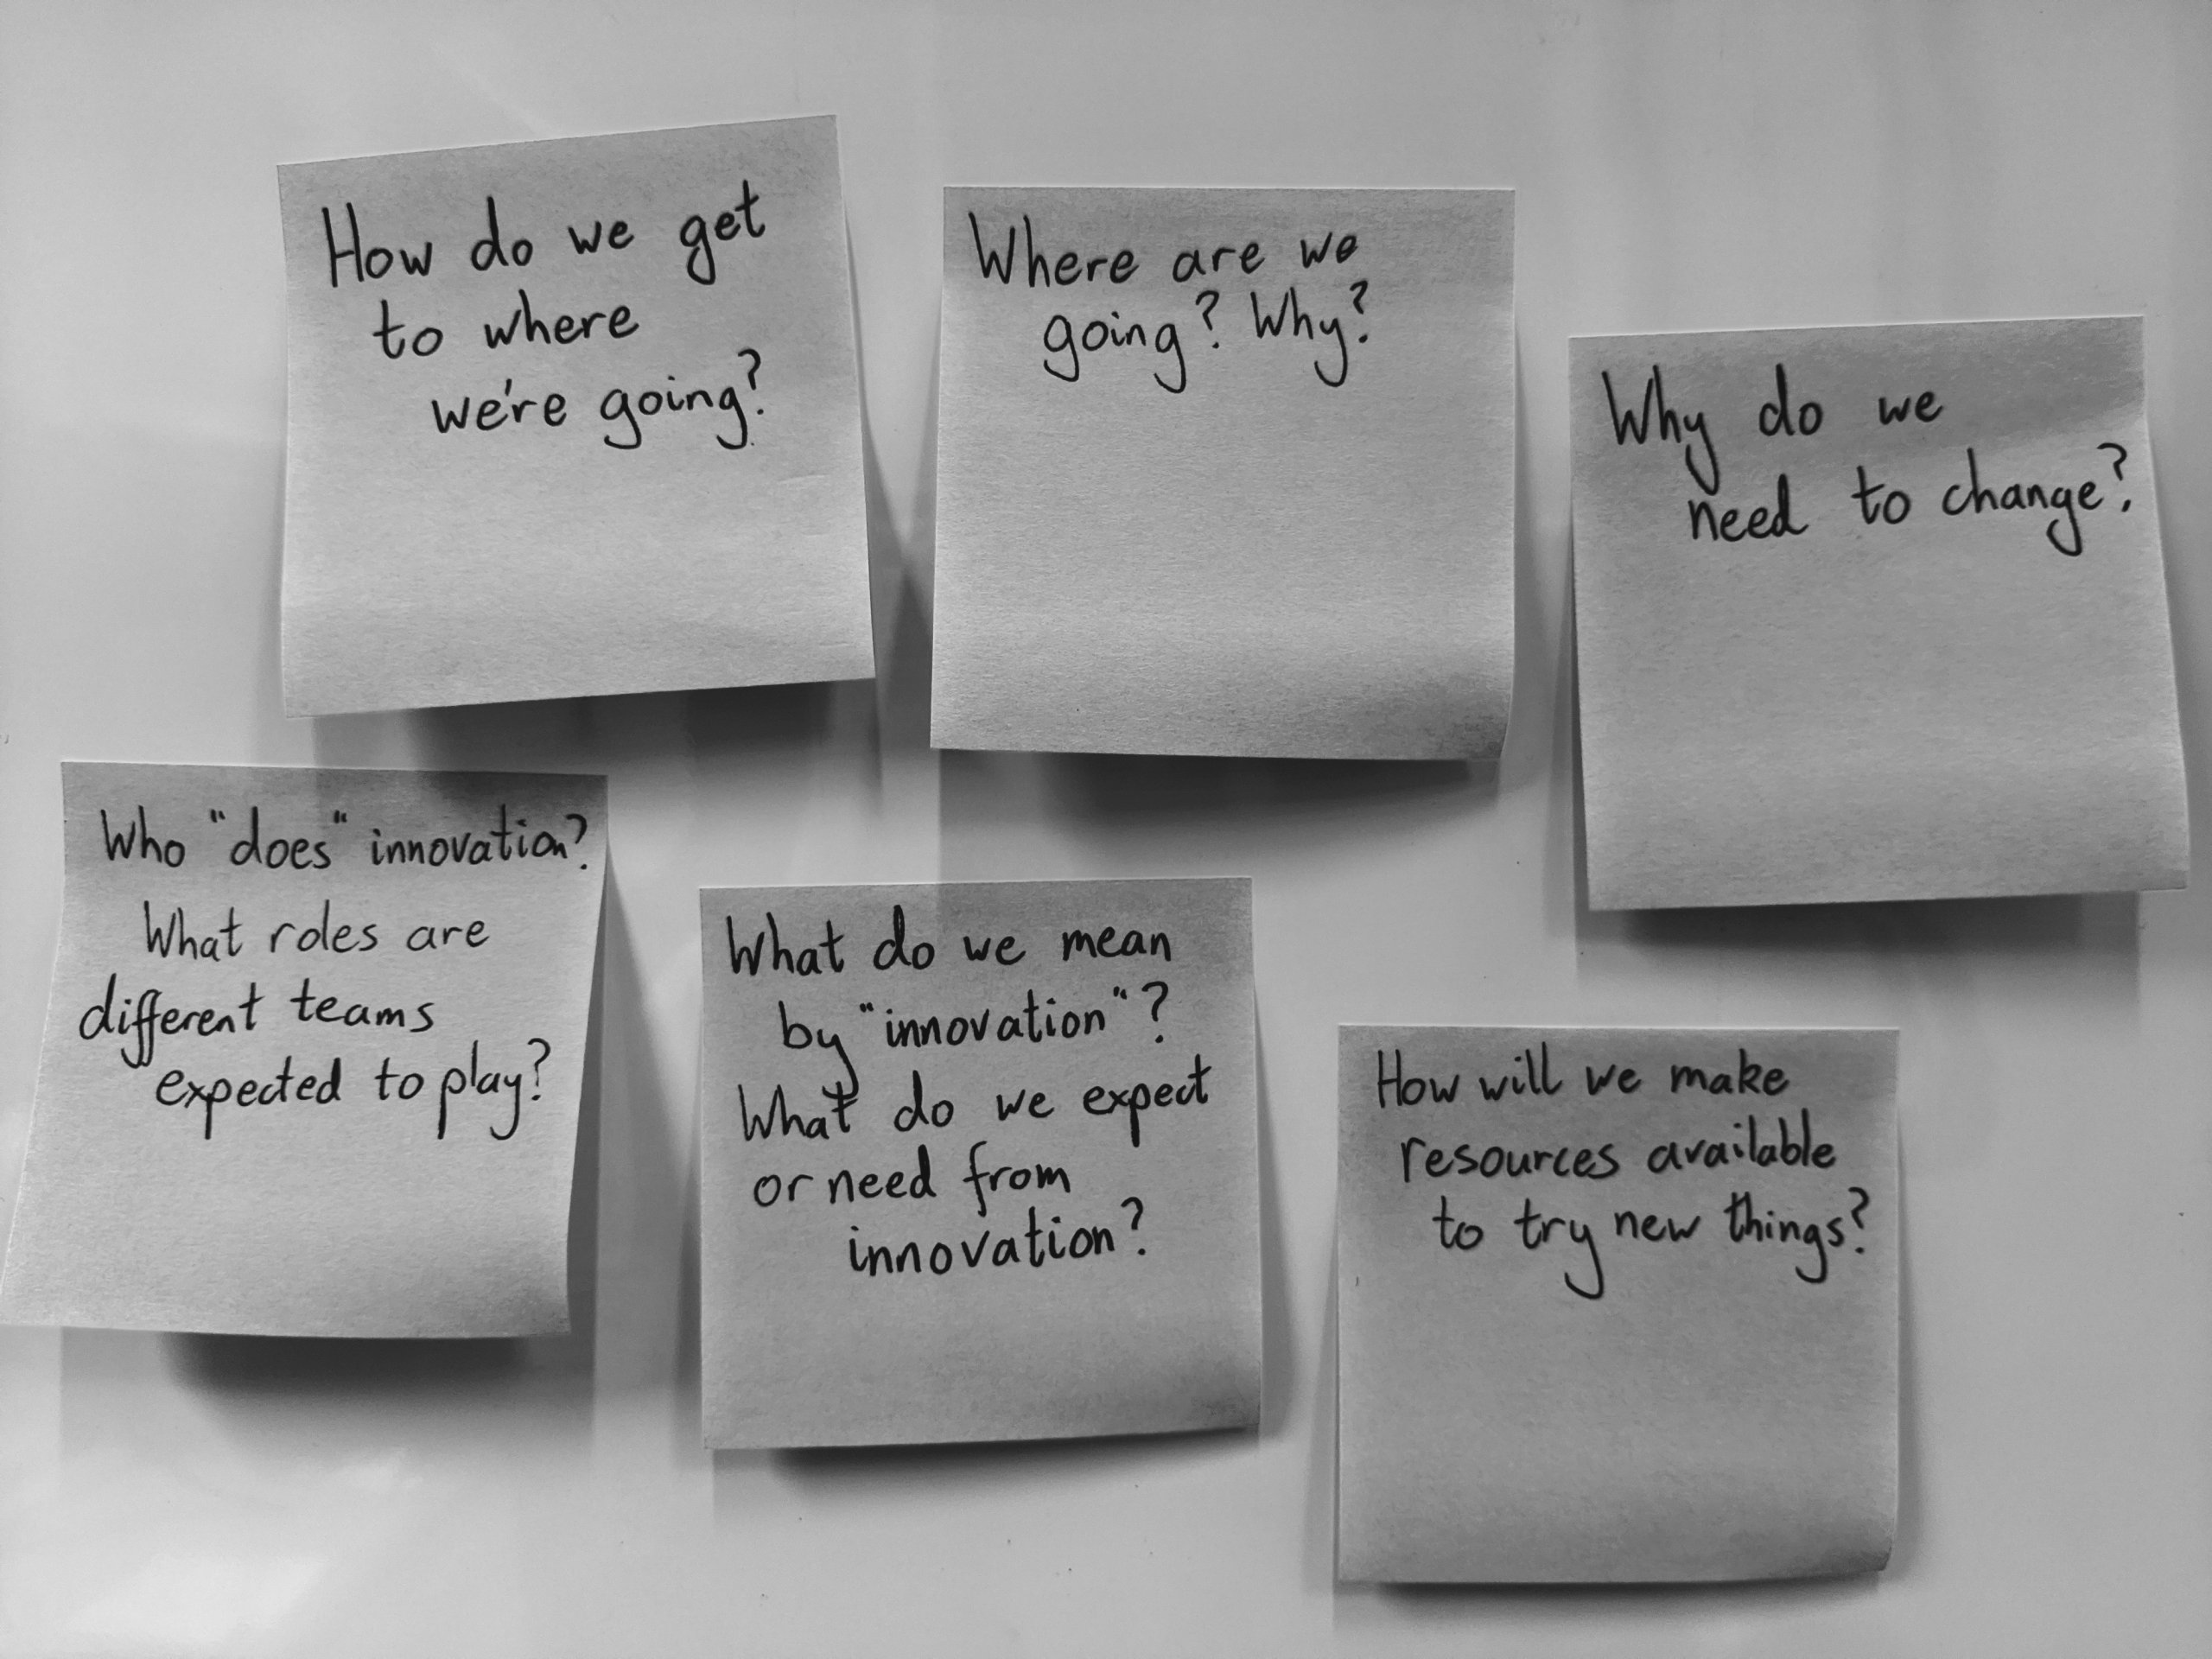 How do we get
to where
we're going?
Where are we
going? Why?
Why do we
need to change?
Who "does" innovation?
What roles are
different teams
expected to play?
What do we mean
by "innovation"?
What do we expect
or need from
innovation?
How will we make
resources available
to try new things?